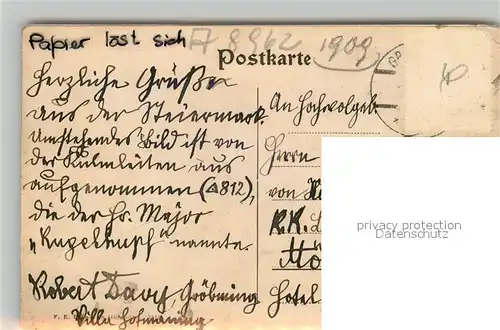 Papier löst sich
A 8962 1909
Postkarte
Herzliche Grüße
aus der Steiermark.
Umstehendes Bild ist von
der Kulmleiten aus
aufgenommen (△812),
die der Hr. Major
„Kugelkupf“ nannte.
Robert Davy, Gröbming
Villa Hofmanning
An Hochwolgeb
Herrn
von
K.K.
Mö
Hotel
privacy protection
Datenschutz